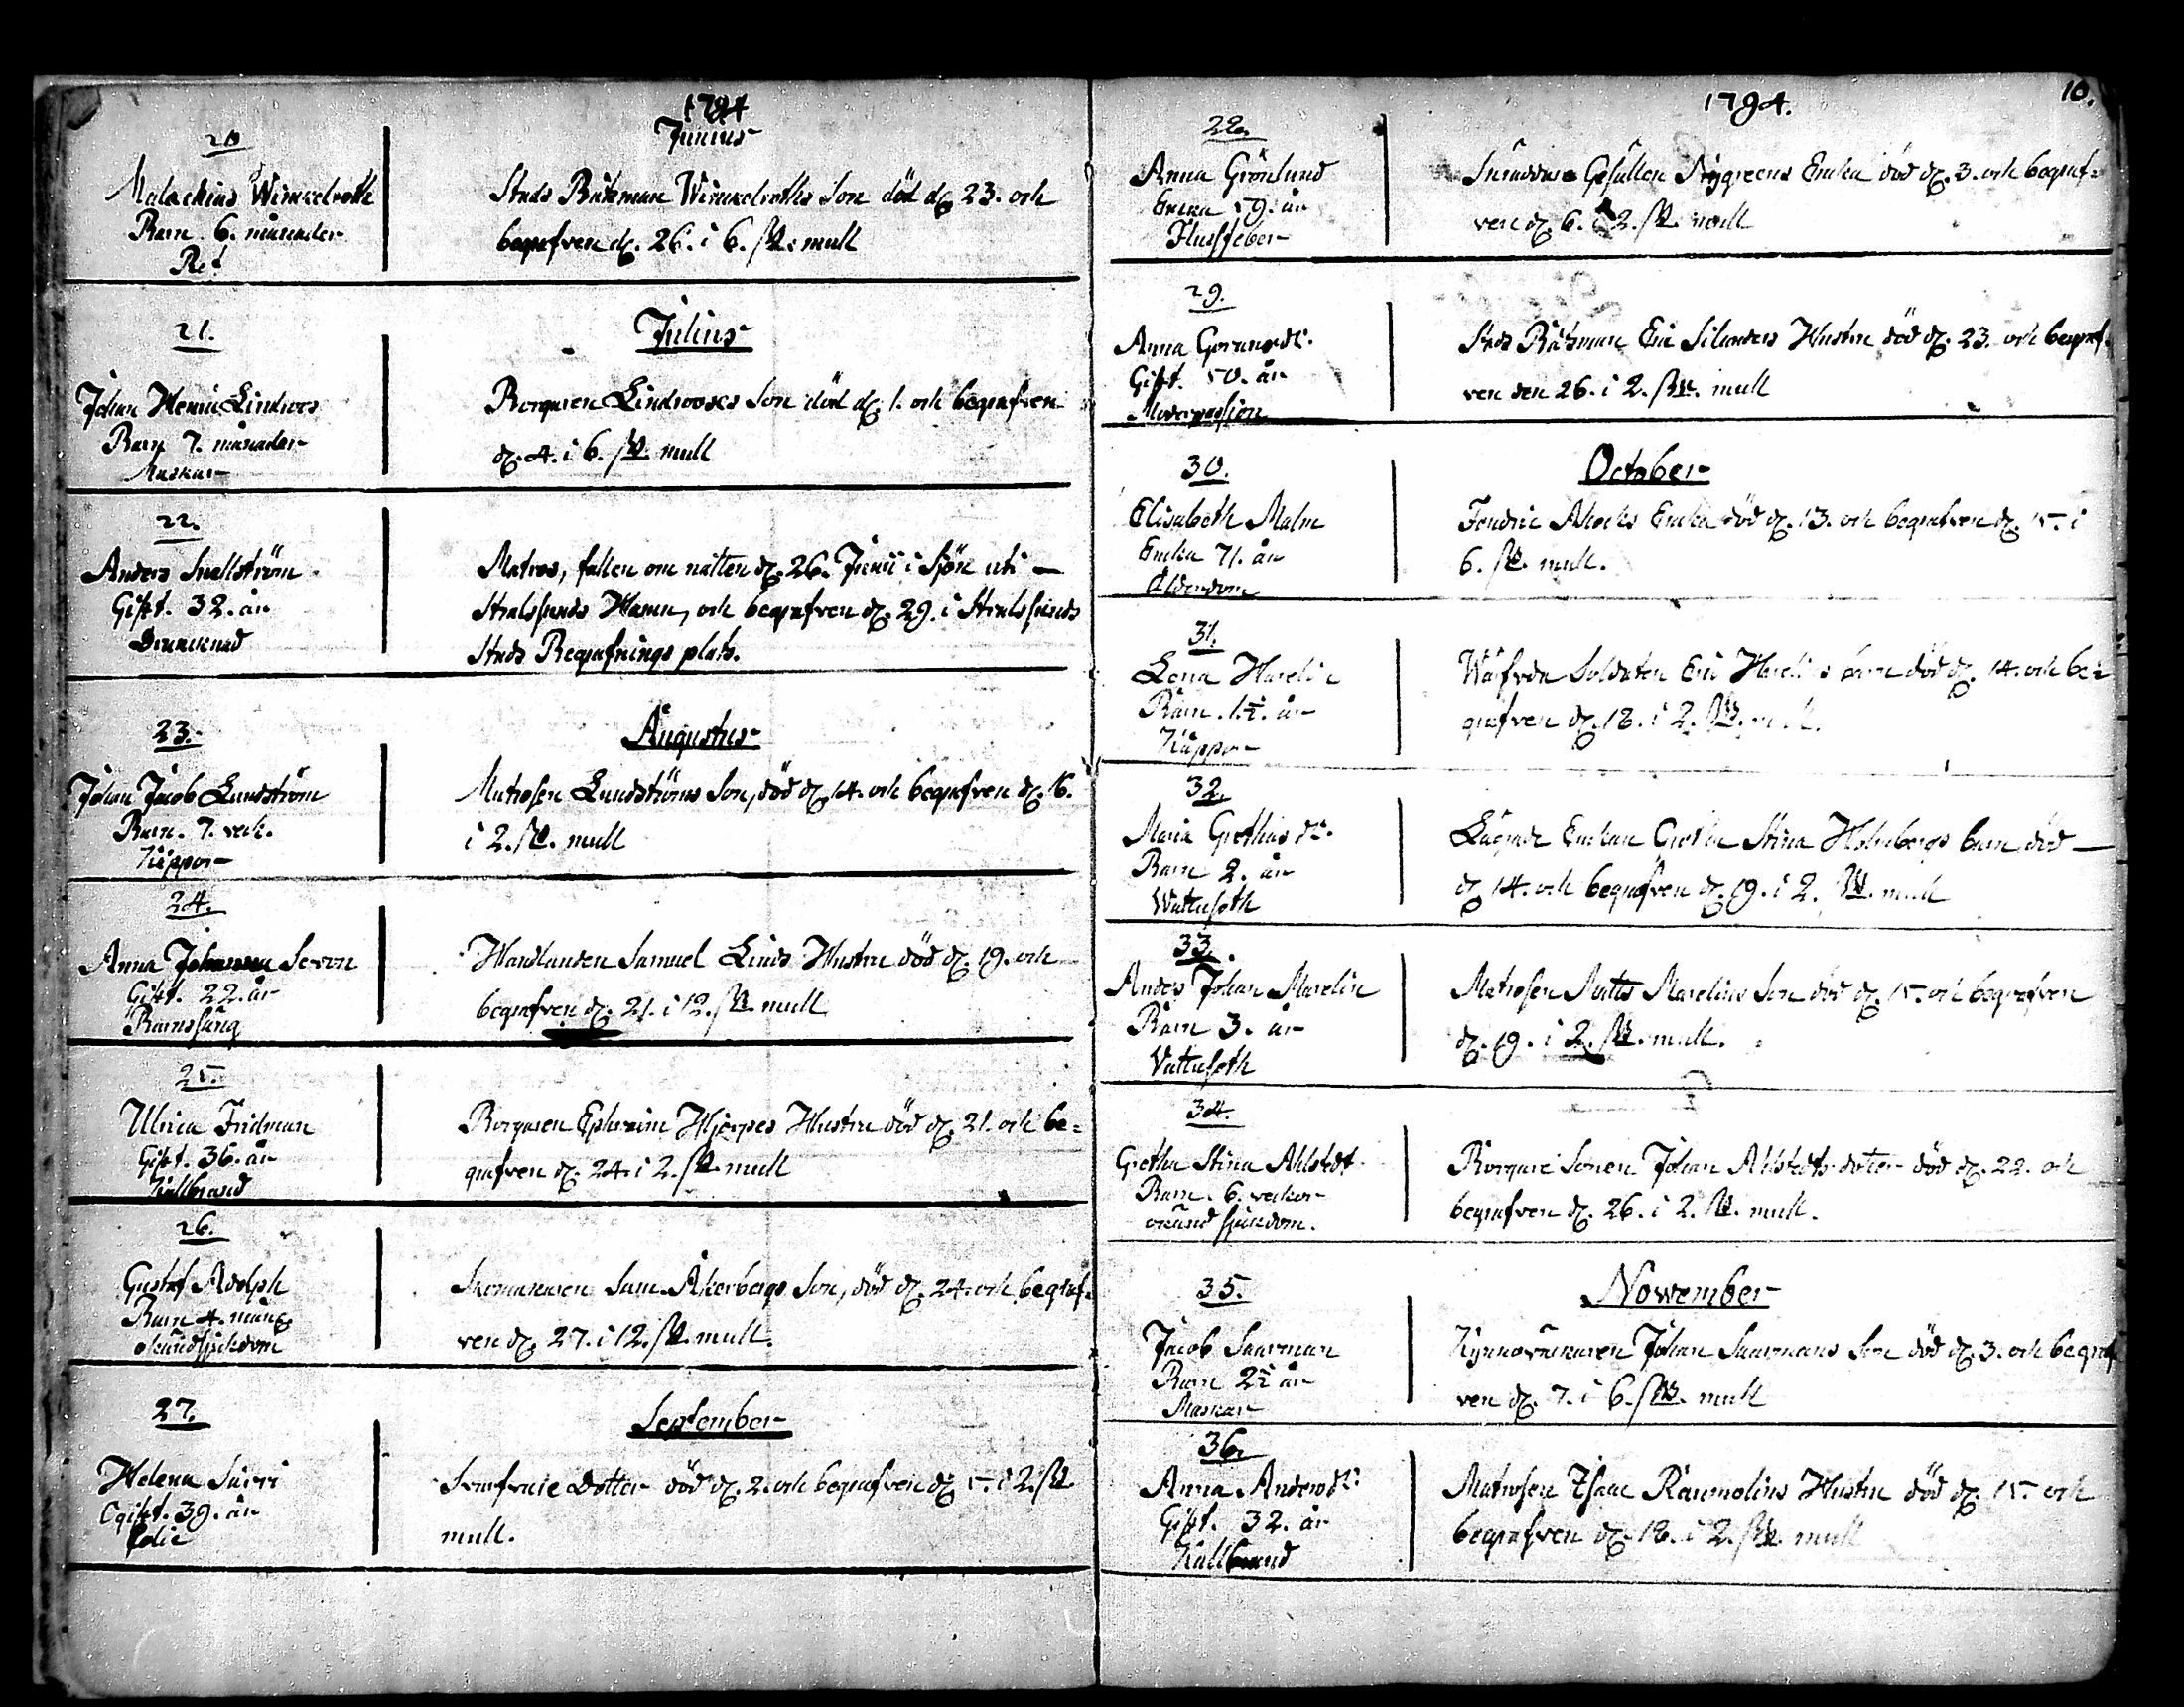 1794
Junius
20
Malachius Winckelroth
Barn. 6. månader
Ref
Stads Båtsman Winckelroths Son död d. 23. och
begrafven d. 26. i 6. sk. mull
21.
Julius
Johan Henric Lindroos
Barn 7. månader
Maskar
Borgaren Lindrooses Son död d. 1. och begrafven
d. 4. i 6. sk. mull
22.
Anders Snellström
Gift. 32. år
Drunknad
Matros, fallen om natten d. 26. Junii i Sjön uti
Stralsunds Hamn, och begrafven d. 29. i Stralsunds
Stads Begrafnings plats.
23.
Augustus
Johan Jacob Lundström
Barn. 7. veck.
Koppor
Matrosen Lundströms Son, död d. 14. och begrafven d. 16.
i 2. sk. mull
24.
Anna Johanna Sevon
Gift. 22. år
Barnssäng
Handlanden Samuel Linds Hustru död d. 19. och
begrafven d. 21. i 12. sk. mull
25.
Ulrica Fridman
Gift. 36. år
Kallbrand
Borgaren Ephraim Hjerpes Hustru död d. 21. och be=
grafven d. 24. i 2. sk. mull
26.
Gustaf Adolph
Barn 4. mån.
okänd sjukdom
Skomakaren Sam. Åkerbergs Son, död d. 24. och begraf=
ven d. 27. i 12. sk. mull.
27.
September
Helena
Ogift. 39. år
dotter död d. 2. och begrafven d. 5. i 2. sk.
mull.
10.
1794.
28.
Anna Grönlund
Enka 59. år
Flussfeber
Gesällen Nygreens Enka död d. 3. och begraf=
ven d. 6. i 2. sk. mull
29.
Anna Göransdr.
Gift. 50. år
Moderpassion
Stads Båtsman Eric Silanders Hustru död d. 23. och begraf=
ven den 26. i 2. sk. mull
30.
October
Elisabeth Malm
Enka 71. år
Ålderdom
Enka död d. 13. och begrafven d. 15. i
6. sk. mull.
31.
Lena Harelin
Barn. 1½. år
Koppor
Wärfvda Soldaten Eric Harelins barn död d. 14. och be=
grafven d. 18. i 2. sk. mull.
32.
Maria Grethasdr.
Barn 2. år
Wattusoth
Enkan Gretha Stina Holmbergs barn död
d. 14. och begrafven d. 19. i 2. sk. mull
33.
Anders Johan Marelin
Barn 3. år
Vattusoth
Matrosen Matts Marelins Son död d. 15. och begrafven
d. 19. i 2. sk. mull.
34.
Gretha Stina Ahlstedt
Barn. 6. veckor
okänd sjukdom.
Borgare Sonen Johan Ahlstedts dotter död d. 22. och
begrafven d. 26. i 2. sk. mull.
35.
Nowember
Jacob Saarman
Barn 2½ år
Maskar
Johan Saarmans Son död d. 3. och begraf
ven d. 7. i 6. sk. mull
36.
Anna Andersdr:
Gift. 32. år
Kallbrand
Matrosen Isaac Raumolins Hustru död d. 15. och
begrafven d. 18. i 2. sk. mull